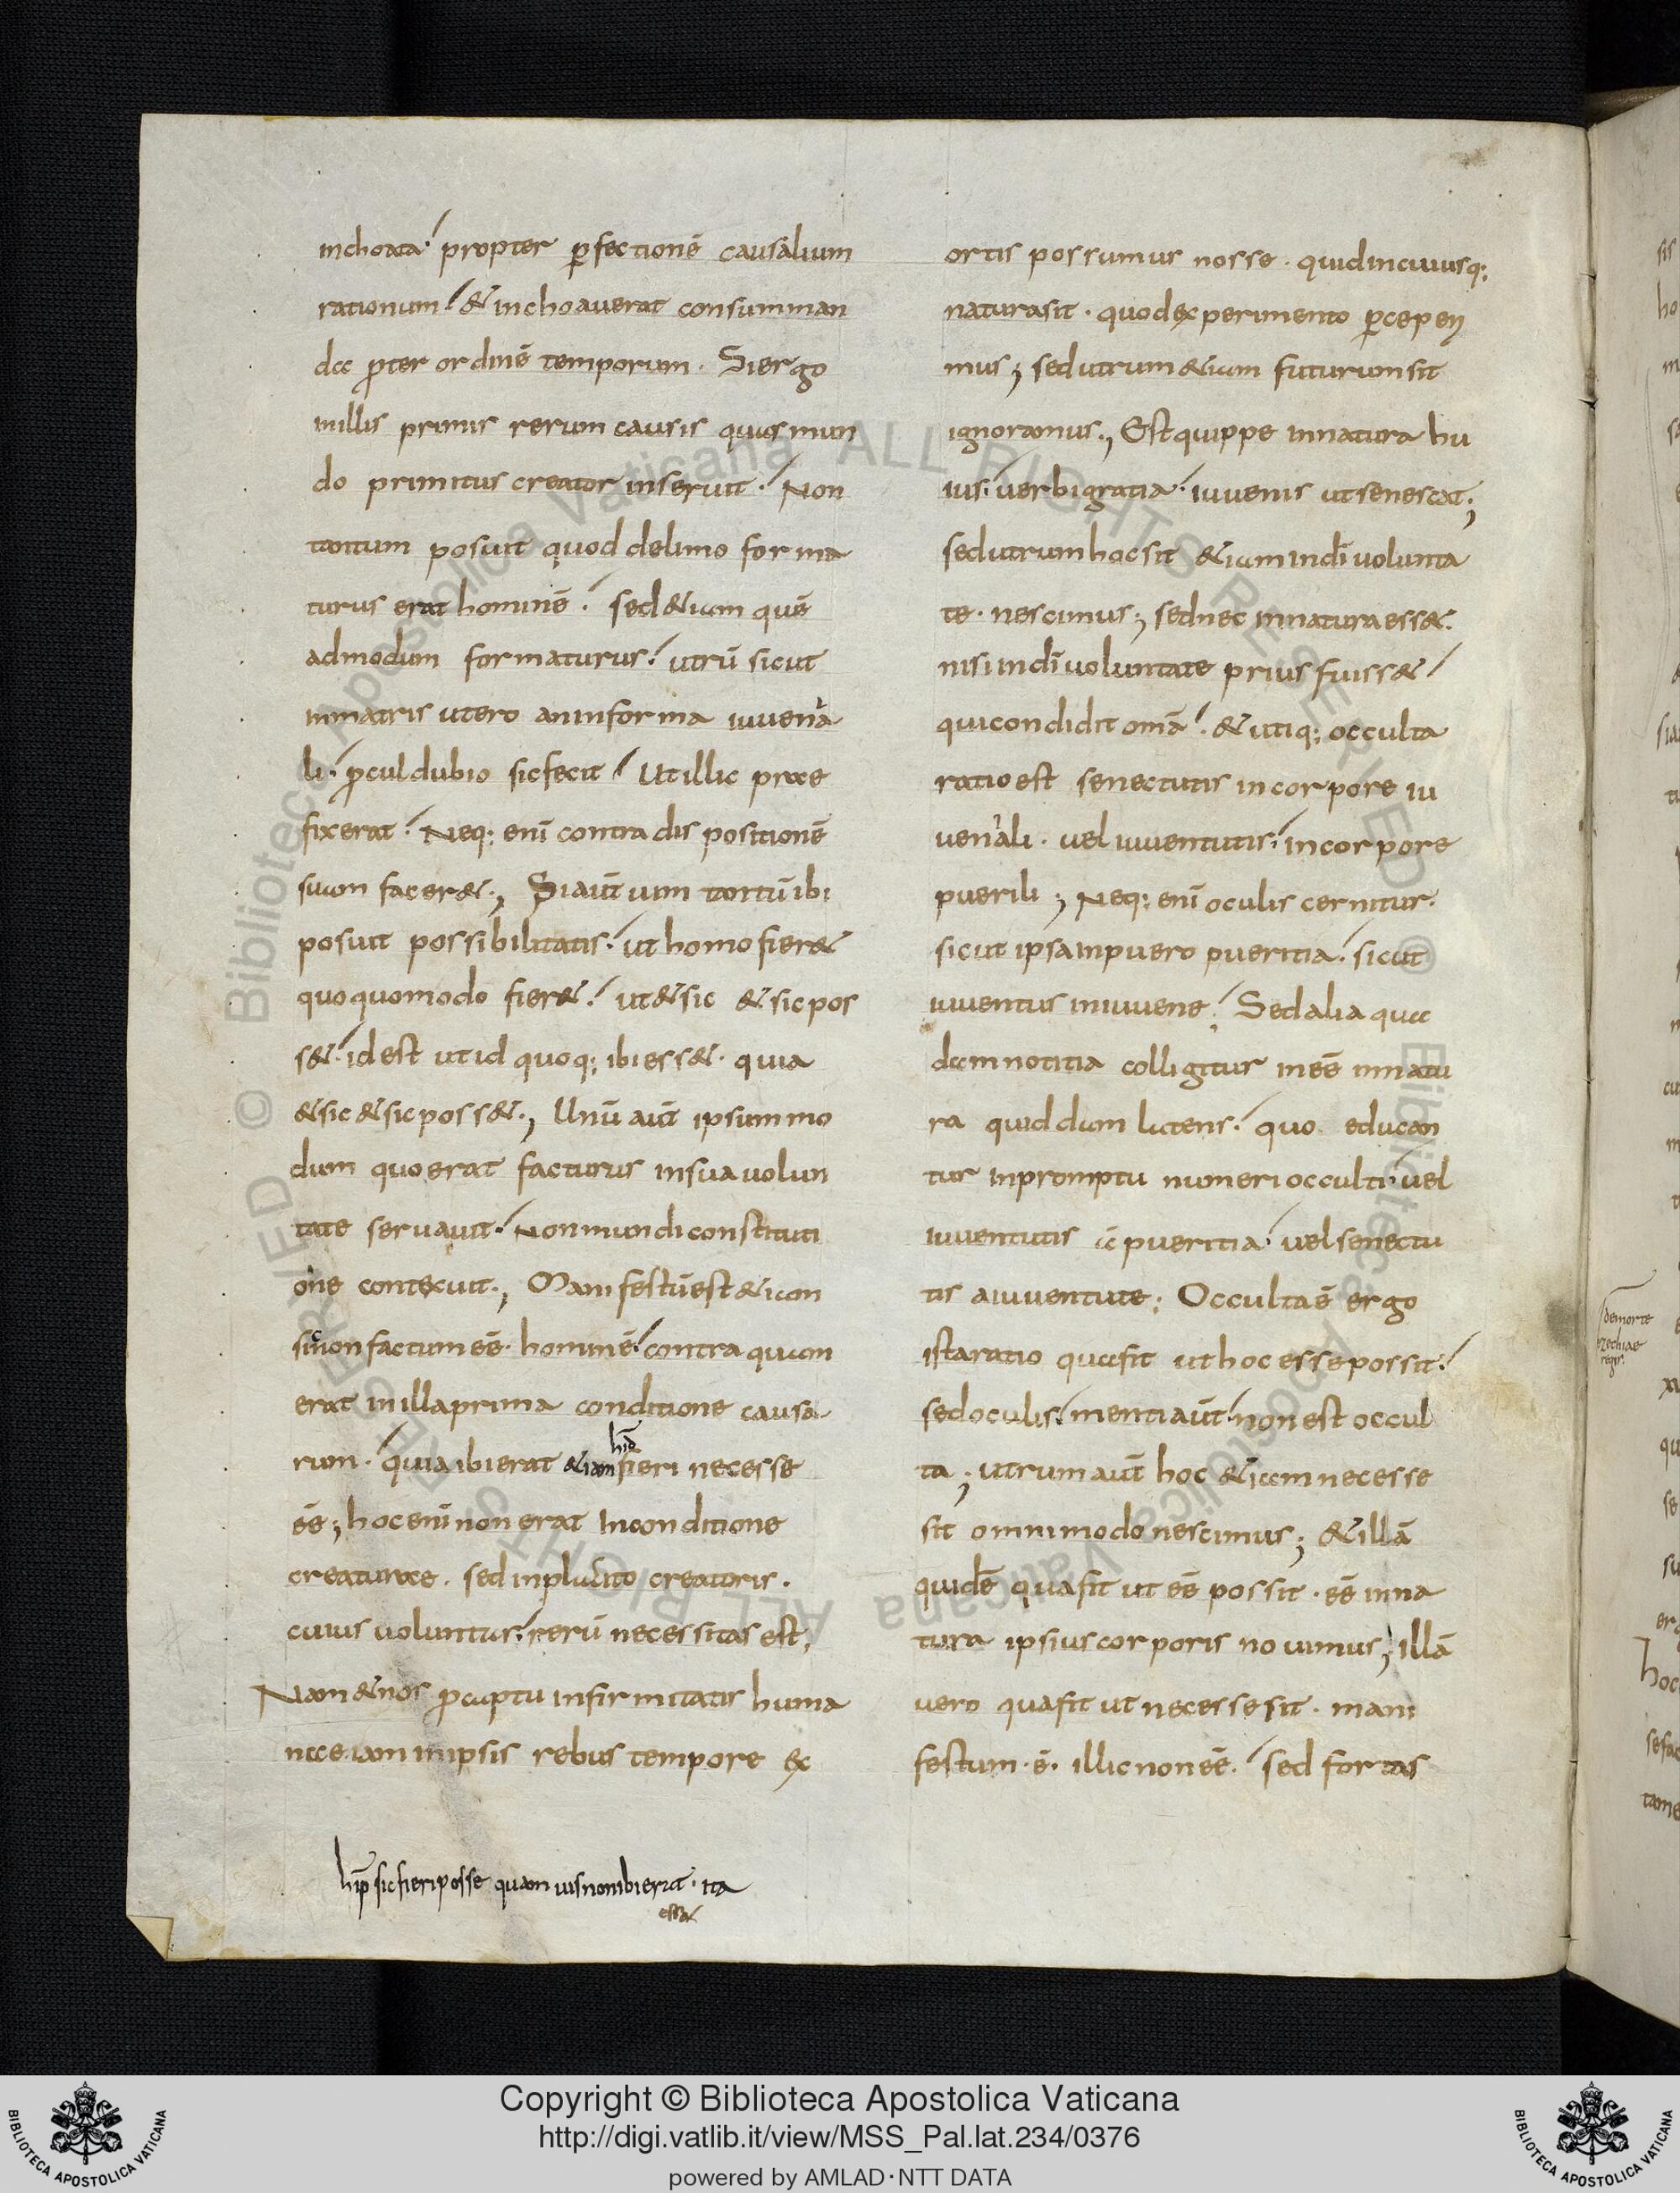 inchoata propter ꝑfectionē causalium
rationum & inchoauerat consumman
da ꝓpter ordinē temporum. Si ergo
in illis primis rerum causis quas mun
do primitus creator inseruit. Non
tantum posuit quod de limo forma
turus erat hominē. sed &iam quē
admodum formaturus. utrū sicut
in matris utero an in forma iuuena
li. ꝓcul dubio sic fecit Ut illic prae
fixerat. Neq; enī contra dispositionē
suam facer&., Si aūt uim tantū ibi
posuit possibilitatis. ut homo fier&
quoquomodo fier&. ut & sic & sic pos
s&. id est ut id quoq; ibi ess&. quia
& sic & sic poss&., Unū aūt ipsum mo
dum quo erat facturus in sua uolun
tate seruauit. Non mundi constituti
one contexuit., Manifestū est &iam
sic non factum eē. hominē. contra quam
erat in illa prima conditione causa
rum. quia ibi erat &iam fieri necesse
eē; hoc enī non erat In conditione
creaturae. sed in placito creatoris.
cuius uoluntas. rerū necessitas est,
Nam & nos ꝓ captu infirmitatis huma
nae iam in ipsis rebus tempore ex
hīp sic fieri posse quam uis non ibi erat. ita
ess&
ortis possumus nosse. quid in cuiusq;
natura sit. quod experimento ꝑcepe
mus; sed utrum &iam futurum sit
ignoramus., Est quippe in natura hu
ius. uerbi gratia. iuuenis ut senescat.,
sed utrum hoc sit &iam in dī uolunta
te. nescimus; sed nec in natura ess&.
nisi in dī uoluntate prius fuiss&
qui condidit omā. & utiq; occulta
ratio est senectutis in corpore iu
uenali. uel iuuentutis. in corpore
puerili; Neq; enī oculis cernitur.
sicut ipsa in puero pueritia. sicut
iuuentus in iuuene. Sed alia qua
dam notitia colligitur ineē in natu
ra quiddam latens. quo educan
tur in promptu numeri occulti. uel
iuuentutis a pueritia. uel senectu
tis a iuuentute; Occulta ē ergo
ista ratio qua fit ut hoc esse possit.
sed oculis. menti aūt. non est occul
ta; utrum aūt hoc &iam necesse
sit omnimodo nescimus; & illā
quidē qua fit ut eē possit. eē in na
tura ipsius corporis nouimus; illā
uero qua fit ut necesse sit. mani
festum. ē. illic non eē. sed fortas
de morte
ezechiae
regis
Copyright © Biblioteca Apostolica Vaticana
http://digi.vatlib.it/view/MSS_Pal.lat.234/0376
powered by AMLAD·NTT DATA
BIBLIOTECA APOSTOLICA VATICANA
BIBLIOTECA APOSTOLICA VATICANA